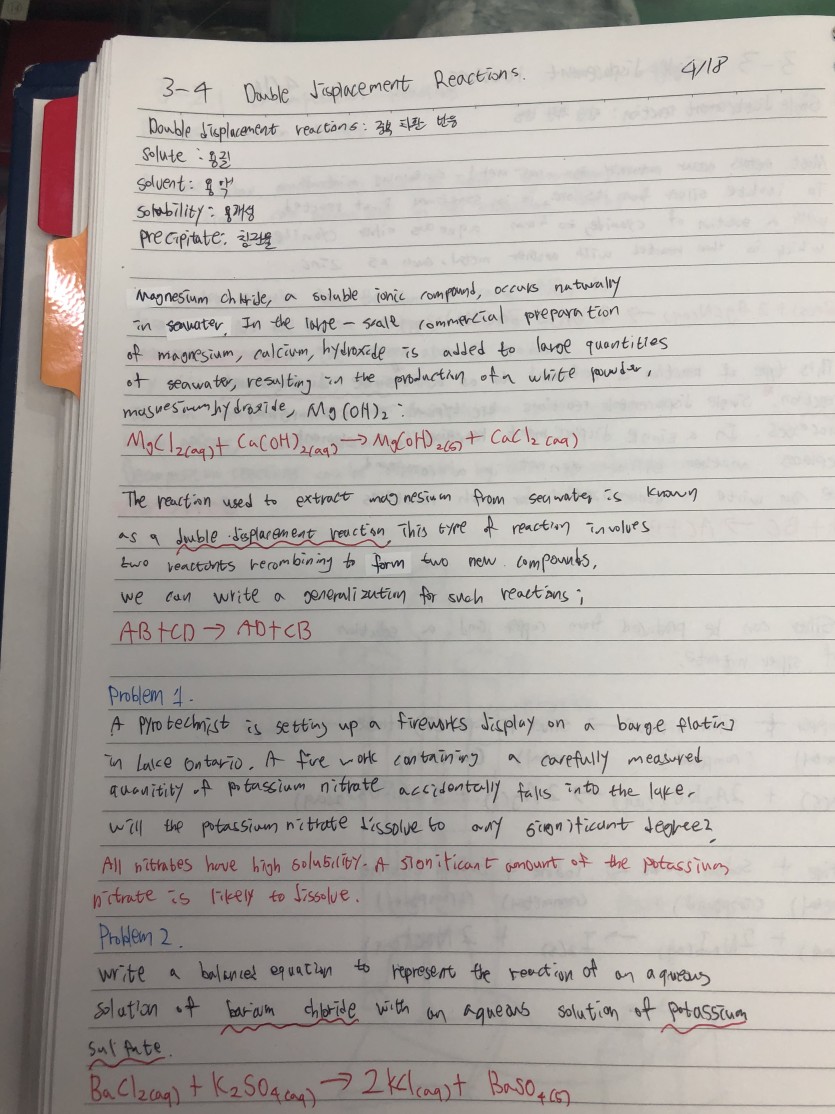 3-4 Double displacement Reactions. 4/18
Double displacement reactions: 이중 치환 반응
Solute : 용질
Solvent: 용액
Solubility: 용해성
precipitate: 침전물
Magnesium chloride, a soluble ionic compound, occurs naturally
in seawater. In the large-scale commercial preparation
of magnesium, calcium, hydroxide is added to large quantities
of seawater, resulting in the production of a white powder,
magnesium hydroxide, Mg(OH)2 :
MgCl2(aq) + Ca(OH)2(aq) → Mg(OH)2(s) + CaCl2 (aq)
The reaction used to extract magnesium from seawater is known
as a double displacement reaction. This type of reaction involves
two reactants recombining to form two new compounds,
we can write a generalization for such reactions;
AB+CD → AD+CB
Problem 1.
A pyrotechnist is setting up a fireworks display on a barge flating
in Lake Ontario. A fire work containing a carefully measured
quanitity of potassium nitrate accidentally falls into the lake.
will the potassium nitrate dissolve to any significant degree?
All nitrates have high solubility. A significant amount of the potassium
nitrate is likely to dissolve.
Problem 2.
write a balanced equation to represent the reaction of an aqueous
solution of barium chloride with an aqueous solution of potassium
sulfate.
BaCl2(aq) + K2SO4(aq) → 2KCl(aq) + BaSO4(s)